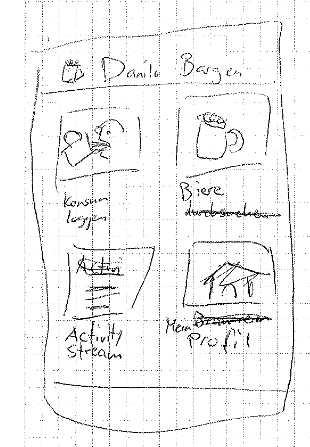 Danilo Bargen
Konsum
loggen
Biere
durchsuchen
Activity
Stream
Mein
Profil